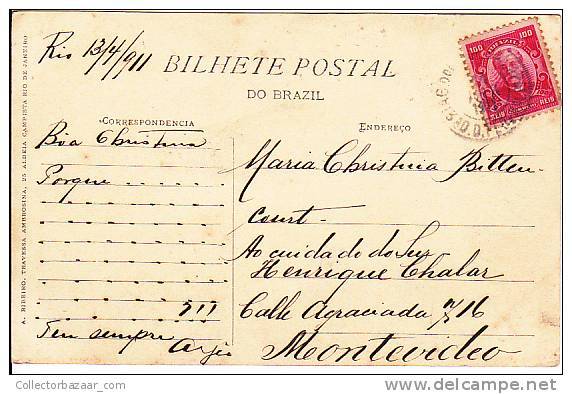 Rio 13/4/911
BILHETE POSTAL
DO BRAZIL
CORRESPONDENCIA
ENDEREÇO
Bôa Christina
Porque
!!!
Teu sempre
Maria Christina Bitten-
court-
Ao cuidado do Snr
Henrique Chalar
Calle Agraciada nº 16
Montevideo
100 BRAZIL 100
REIS REIS
A. RIBEIRO, TRAVESSA AMBROSINA, 25 ALDEIA CAMPISTA RIO DE JANEIRO
Collectorbazaar_com
delcampe.net